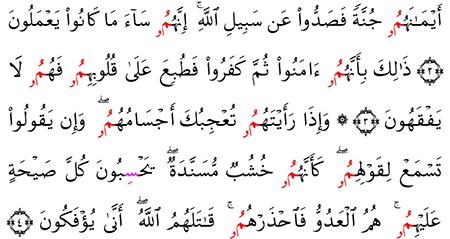 أَيْمَـٰنَهُمُۥ جُنَّةً فَصَدُّوا۟ عَن سَبِيلِ ٱللَّهِ ۚ إِنَّهُمُۥ سَآءَ مَا كَانُوا۟ يَعْمَلُونَ
﴿٢﴾ ذَٰلِكَ بِأَنَّهُمُۥ ءَامَنُوا۟ ثُمَّ كَفَرُوا۟ فَطُبِعَ عَلَىٰ قُلُوبِهِمُۥ فَهُمُۥ لَا
يَفْقَهُونَ ﴿٣﴾ ۞ وَإِذَا رَأَيْتَهُمُۥ تُعْجِبُكَ أَجْسَامُهُمُۥ ۖ وَإِن يَقُولُوا۟
تَسْمَعْ لِقَوْلِهِمُۥ ۖ كَأَنَّهُمُۥ خُشُبٌ مُّسَنَّدَةٌ ۖ يَحْسِبُونَ كُلَّ صَيْحَةٍ
عَلَيْهِمُۥ ۚ هُمُ ٱلْعَدُوُّ فَٱحْذَرْهُمُۥ ۚ قَـٰتَلَهُمُ ٱللَّهُ ۖ أَنَّىٰ يُؤْفَكُونَ ﴿٤﴾